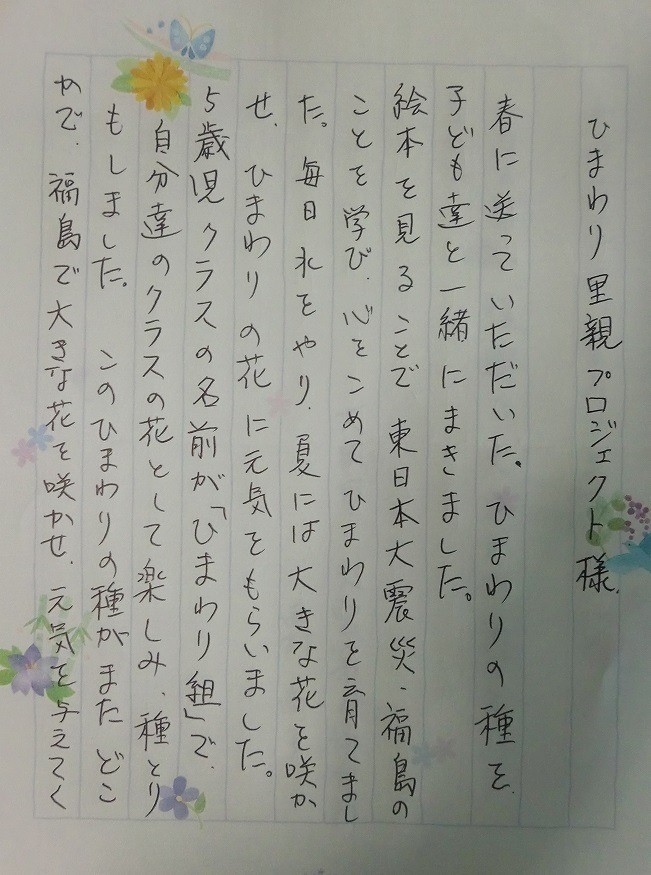 ひまわり里親プロジェクト様.
春に送っていただいた。ひまわりの種を.
子ども達と一緒にまきました。
絵本を見ることで東日本大震災・福島の
ことを学び、心をこめてひまわりを育てまし
た。毎日水をやり、夏には大きな花を咲か
せ、ひまわりの花に元気をもらいました。
5歳児クラスの名前が「ひまわり組」で.
自分達のクラスの花として楽しみ、種とり
もしました。このひまわりの種がまたどこ
かで、福島で大きな花を咲かせ、元気を与えてく